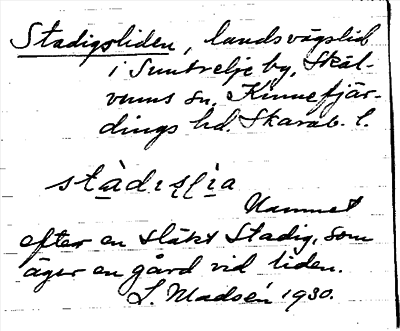 Stadigsliden, landsvägslid
i Suntrelje by, Skäl-
vums sn. Kinnefjär-
dings hd. Skarab. l.
stàdısḷìa
Namnet
efter en släkt Stadig, som
äger en gård vid liden.
L. Madsén 1930.